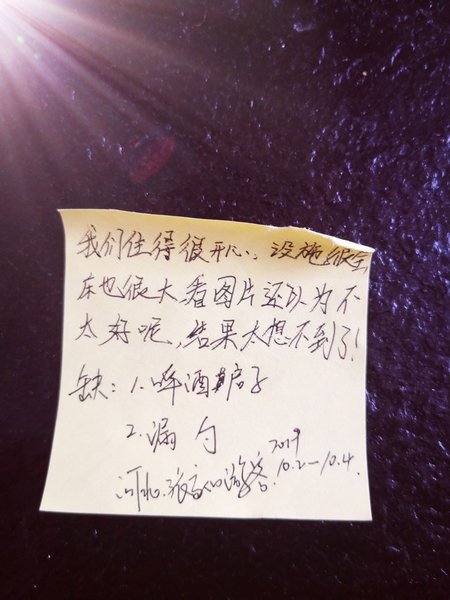 我们住得很开心,设施很全
床也很大看图片还以为不
太好呢,结果太想不到了!
缺:1.啤酒起子
2.漏勺
2019
河北.张家口游客. 10.2—10.4.